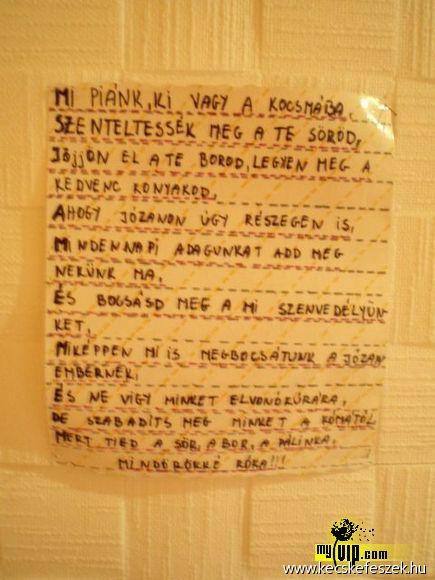 MI PIÁNK, KI VAGY A KOCSMÁBA,
SZENTELTESSÉK MEG A TE SÖRÖD,
JÖJJÖN EL A TE BOROD, LEGYEN MEG A
KEDVENC KONYAKOD,
AHOGY JÓZANON ÚGY RÉSZEGEN IS,
MINDENNAPI ADAGUNKAT ADD MEG
NEKÜNK MA,
ÉS BOCSÁSD MEG A MI SZENVEDÉLYÜN-
KET,
MIKÉPPEN MI IS MEGBOCSÁTUNK A JÓZAN
EMBERNEK,
ÉS NE VIGY MINKET ELVONÓKÚRÁRA,
DE SZABADÍTS MEG MINKET A KÓMÁTÓL
MERT TIED A SÖR, A BOR, A PÁLINKA,
MINDÖRÖKKÉ RÓKA!!!
myVIP.com
www.kecskefeszek.hu